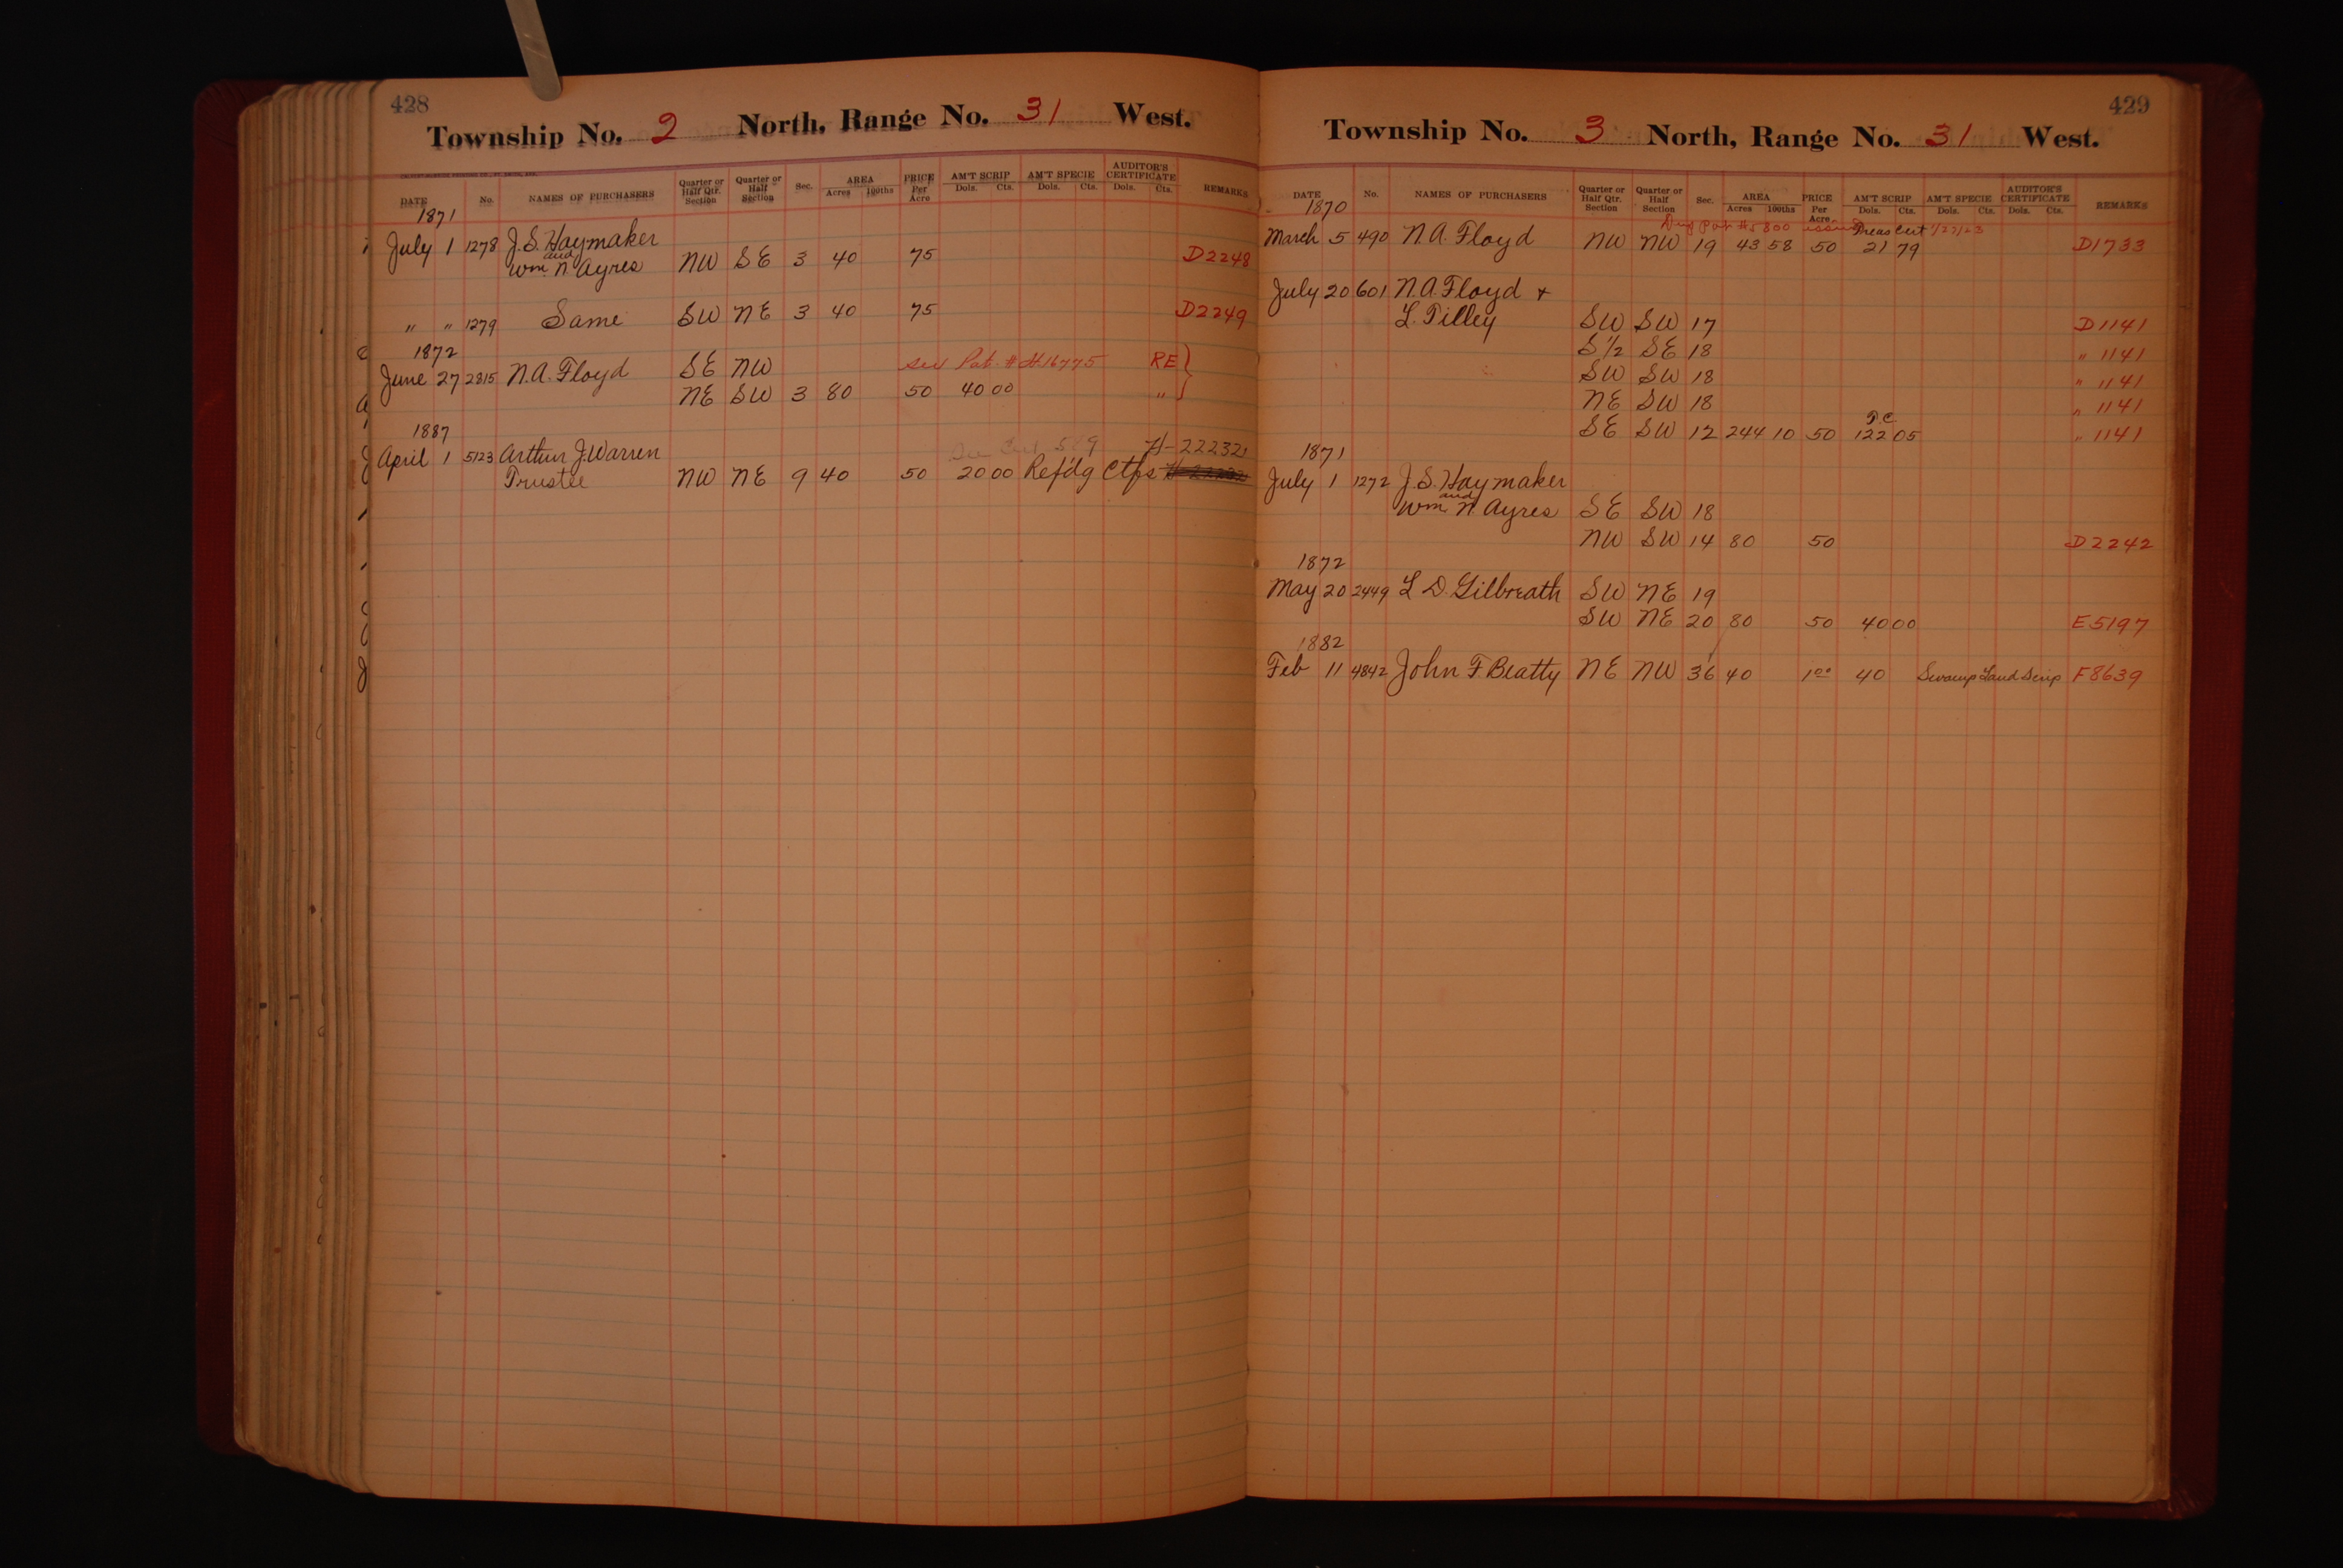 428
Township No. 2 North, Range No. 31 West.
DATE No. NAMES OF PURCHASERS Quarter or Half Qtr. Section Quarter or Half Section Sec. AREA Acres 100ths PRICE Per Acre AM'T SCRIP Dols. Cts. AM'T SPECIE Dols. Cts. AUDITOR'S CERTIFICATE Dols. Cts. REMARKS
1871
July 1 1278 J.S. Haymaker
and
Wm. N. Ayres NW SE 3 40 75 D2248
" " 1279 Same SW NE 3 40 75 D2249
1872
June 27 2815 N.A. Floyd SE NW Pat. # H.16775 RE
NE SW 3 80 50 40 00 "
1887
April 1 5123 Arthur J. Warren H-22232
Trustee NW NE 9 40 50 20 00 Ref'dg Ctfs
429
Township No. 3 North, Range No. 31 West.
DATE No. NAMES OF PURCHASERS Quarter or Half Qtr. Section Quarter or Half Section Sec. AREA Acres 100ths PRICE Per Acre AM'T SCRIP Dols. Cts. AM'T SPECIE Dols. Cts. AUDITOR'S CERTIFICATE Dols. Cts. REMARKS
1870
Pat #5800 issued Treas Cert
March 5 490 N.A. Floyd NW NW 19 43 58 50 21 79 D1733
July 20 601 N.A. Floyd +
L. Tilley SW SW 17 D1141
S 1/2 SE 18 " 1141
SW SW 18 " 1141
NE SW 18 " 1141
T.C.
SE SW 12 244 10 50 122 05 " 1141
1871
July 1 1272 J.S. Haymaker
and
Wm. N. Ayres SE SW 18
NW SW 14 80 50 D2242
1872
May 20 2449 L D. Gilbreath SW NE 19
SW NE 20 80 50 40 00 E5197
1882
Feb 11 4842 John F. Beatty NE NW 36 40 1 00 40 Swamp Land Scrip F8639